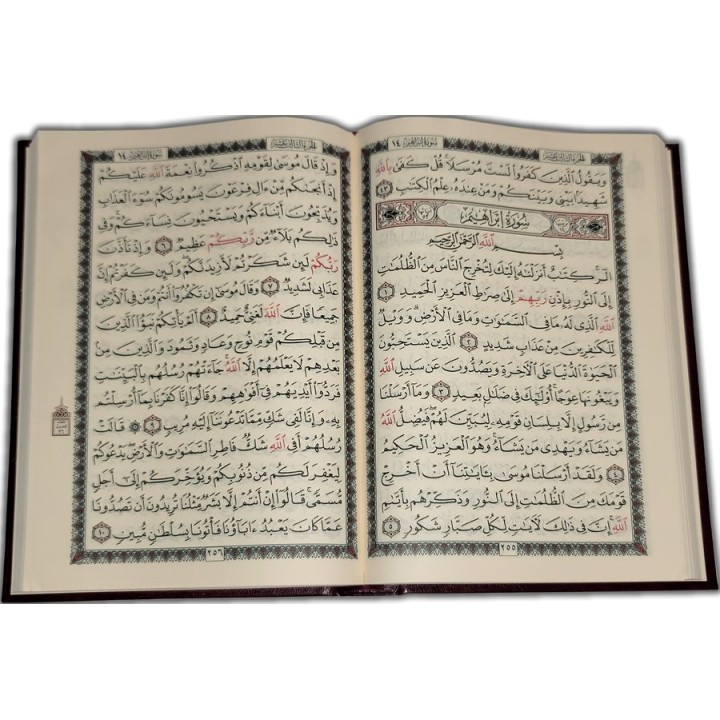 سورة إبراهيم ١٤
الجزء الثالث عشر
وَيَقُولُ الَّذِينَ كَفَرُوا لَسْتَ مُرْسَلًا قُلْ كَفَىٰ بِاللَّهِ
شَهِيدًا بَيْنِي وَبَيْنَكُمْ وَمَنْ عِندَهُ عِلْمُ الْكِتَٰبِ ٤٣
سُورَةُ إِبْرَاهِيمَ
بِسْمِ اللَّهِ الرَّحْمَٰنِ الرَّحِيمِ
الٓر كِتَٰبٌ أَنزَلْنَٰهُ إِلَيْكَ لِتُخْرِجَ النَّاسَ مِنَ الظُّلُمَٰتِ
إِلَى النُّورِ بِإِذْنِ رَبِّهِمْ إِلَىٰ صِرَٰطِ الْعَزِيزِ الْحَمِيدِ ١
اللَّهِ الَّذِي لَهُ مَا فِي السَّمَٰوَٰتِ وَمَا فِي الْأَرْضِ وَوَيْلٌ
لِّلْكَٰفِرِينَ مِنْ عَذَابٍ شَدِيدٍ ٢ الَّذِينَ يَسْتَحِبُّونَ
الْحَيَوٰةَ الدُّنْيَا عَلَى الْآخِرَةِ وَيَصُدُّونَ عَن سَبِيلِ اللَّهِ
وَيَبْغُونَهَا عِوَجًا أُولَٰئِكَ فِي ضَلَٰلٍ بَعِيدٍ ٣ وَمَا أَرْسَلْنَا
مِن رَّسُولٍ إِلَّا بِلِسَانِ قَوْمِهِ لِيُبَيِّنَ لَهُمْ فَيُضِلُّ اللَّهُ
مَن يَشَاءُ وَيَهْدِي مَن يَشَاءُ وَهُوَ الْعَزِيزُ الْحَكِيمُ
٤ وَلَقَدْ أَرْسَلْنَا مُوسَىٰ بِـَٔايَٰتِنَا أَنْ أَخْرِجْ
قَوْمَكَ مِنَ الظُّلُمَٰتِ إِلَى النُّورِ وَذَكِّرْهُم بِأَيَّىٰمِ
اللَّهِ إِنَّ فِي ذَٰلِكَ لَآيَٰتٍ لِّكُلِّ صَبَّارٍ شَكُورٍ ٥
٢٥٥
سورة إبراهيم ١٤
الجزء الثالث عشر
وَإِذْ قَالَ مُوسَىٰ لِقَوْمِهِ اذْكُرُوا نِعْمَةَ اللَّهِ عَلَيْكُمْ
إِذْ أَنجَىٰكُم مِّنْ ءَالِ فِرْعَوْنَ يَسُومُونَكُمْ سُوءَ الْعَذَابِ
وَيُذَبِّحُونَ أَبْنَاءَكُمْ وَيَسْتَحْيُونَ نِسَاءَكُمْ وَفِي
ذَٰلِكُم بَلَاءٌ مِّن رَّبِّكُمْ عَظِيمٌ ٦ وَإِذْ تَأَذَّنَ
رَبُّكُمْ لَئِن شَكَرْتُمْ لَأَزِيدَنَّكُمْ وَلَئِن كَفَرْتُمْ إِنَّ
عَذَابِي لَشَدِيدٌ ٧ وَقَالَ مُوسَىٰ إِن تَكْفُرُوا أَنتُمْ وَمَن فِي الْأَرْضِ
جَمِيعًا فَإِنَّ اللَّهَ لَغَنِيٌّ حَمِيدٌ ٨ أَلَمْ يَأْتِكُمْ نَبَؤُا الَّذِينَ
مِن قَبْلِكُمْ قَوْمِ نُوحٍ وَعَادٍ وَثَمُودَ وَالَّذِينَ مِن
بَعْدِهِمْ لَا يَعْلَمُهُمْ إِلَّا اللَّهُ جَاءَتْهُمْ رُسُلُهُم بِالْبَيِّنَٰتِ
فَرَدُّوا أَيْدِيَهُمْ فِي أَفْوَٰهِهِمْ وَقَالُوا إِنَّا كَفَرْنَا بِمَا أُرْسِلْتُم
بِهِ وَإِنَّا لَفِي شَكٍّ مِّمَّا تَدْعُونَنَا إِلَيْهِ مُرِيبٍ ٩ ۞ قَالَتْ
رُسُلُهُمْ أَفِي اللَّهِ شَكٌّ فَاطِرِ السَّمَٰوَٰتِ وَالْأَرْضِ يَدْعُوكُمْ
لِيَغْفِرَ لَكُم مِّن ذُنُوبِكُمْ وَيُؤَخِّرَكُمْ إِلَىٰ أَجَلٍ
مُّسَمًّى قَالُوا إِنْ أَنتُمْ إِلَّا بَشَرٌ مِّثْلُنَا تُرِيدُونَ أَن تَصُدُّونَا
عَمَّا كَانَ يَعْبُدُ ءَابَاؤُنَا فَأْتُونَا بِسُلْطَٰنٍ مُّبِينٍ ١٠
٢٥٦